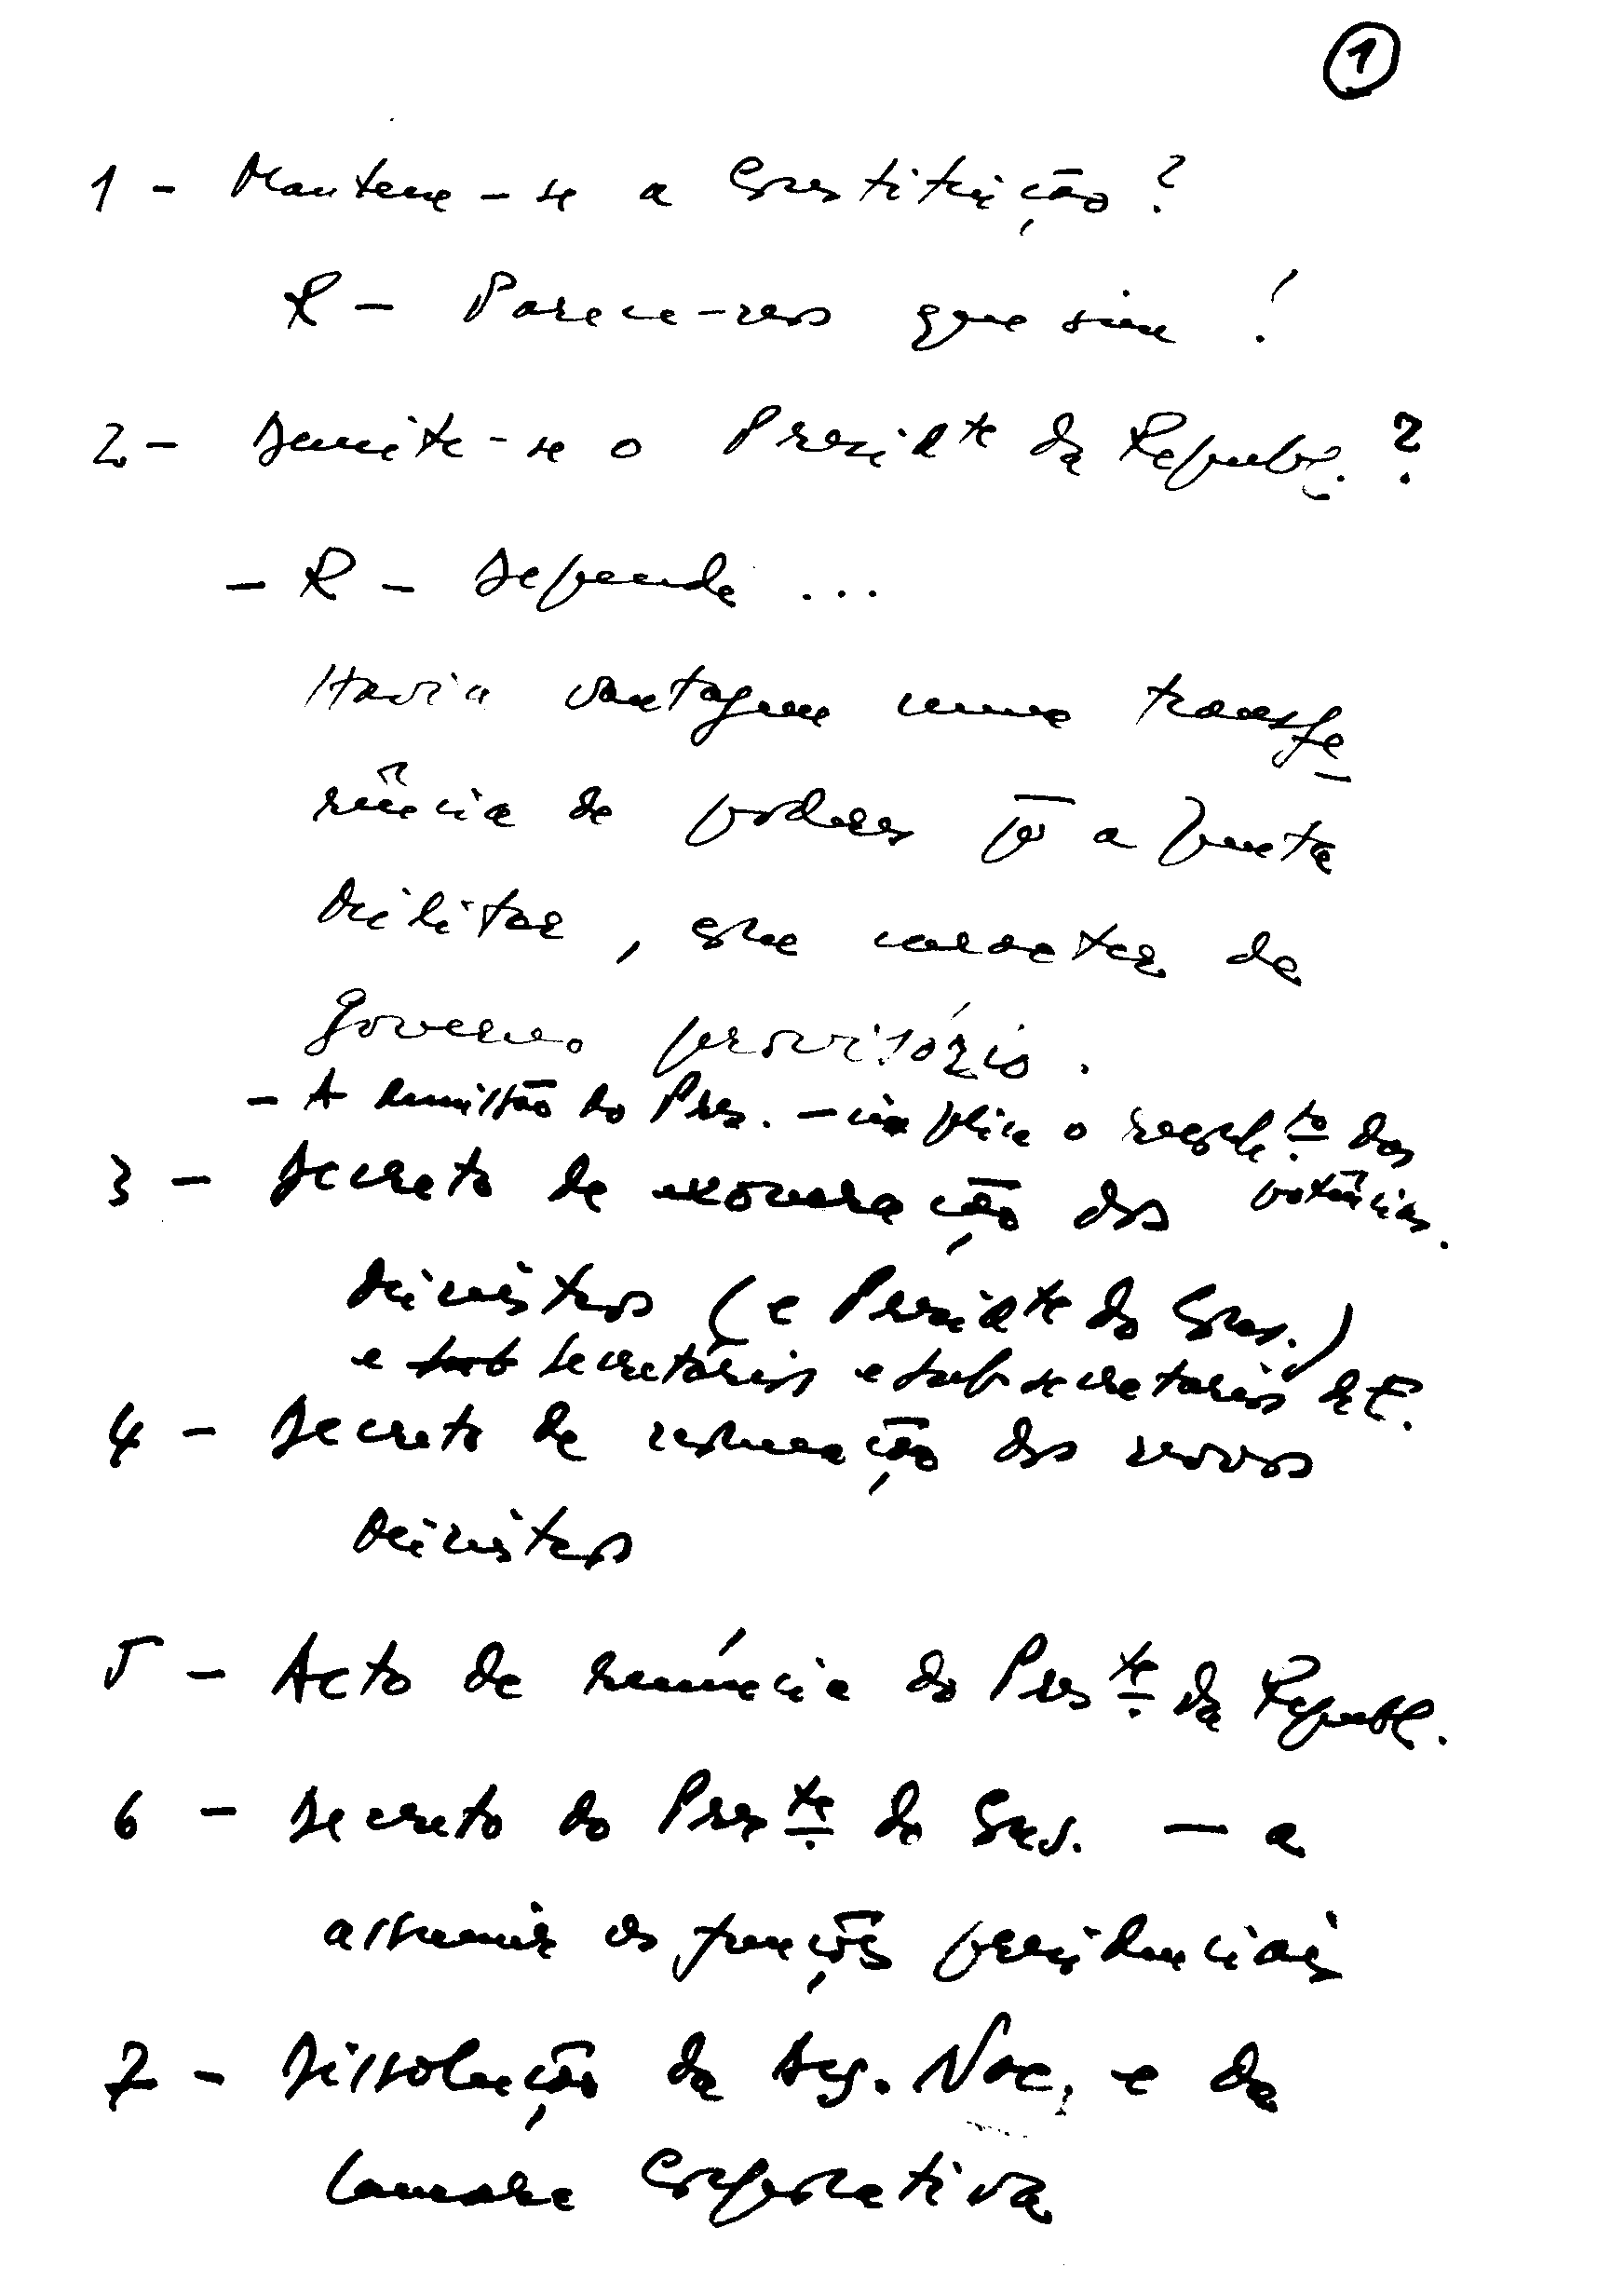 1
1 - Mantem-se a Constituição?
R - Parece-nos que sim!
2 - Demite-se o Presidte da Republ.?
- R - Depende ...
Havia vantagem numa transfe
rência de poderes pª a Junta
Militar, com caracter de
Governo provisório.
- A demissão do Pres. - implica o reconhec.to das
potências.
3 - Decreto de exoneração dos
Ministros (e Presidte do Cons.)
e sub secretários e sub secretarios de E.
4 - Decreto de nomeação dos novos
Ministros
5 - Acto de renúncia do Pres.te da Republ.
6 - Decreto do Pres.te do Cons. - a
assumir as funções presidenciais
7 - Dissolução da Ass. Nac. e da
Camara Corporativa